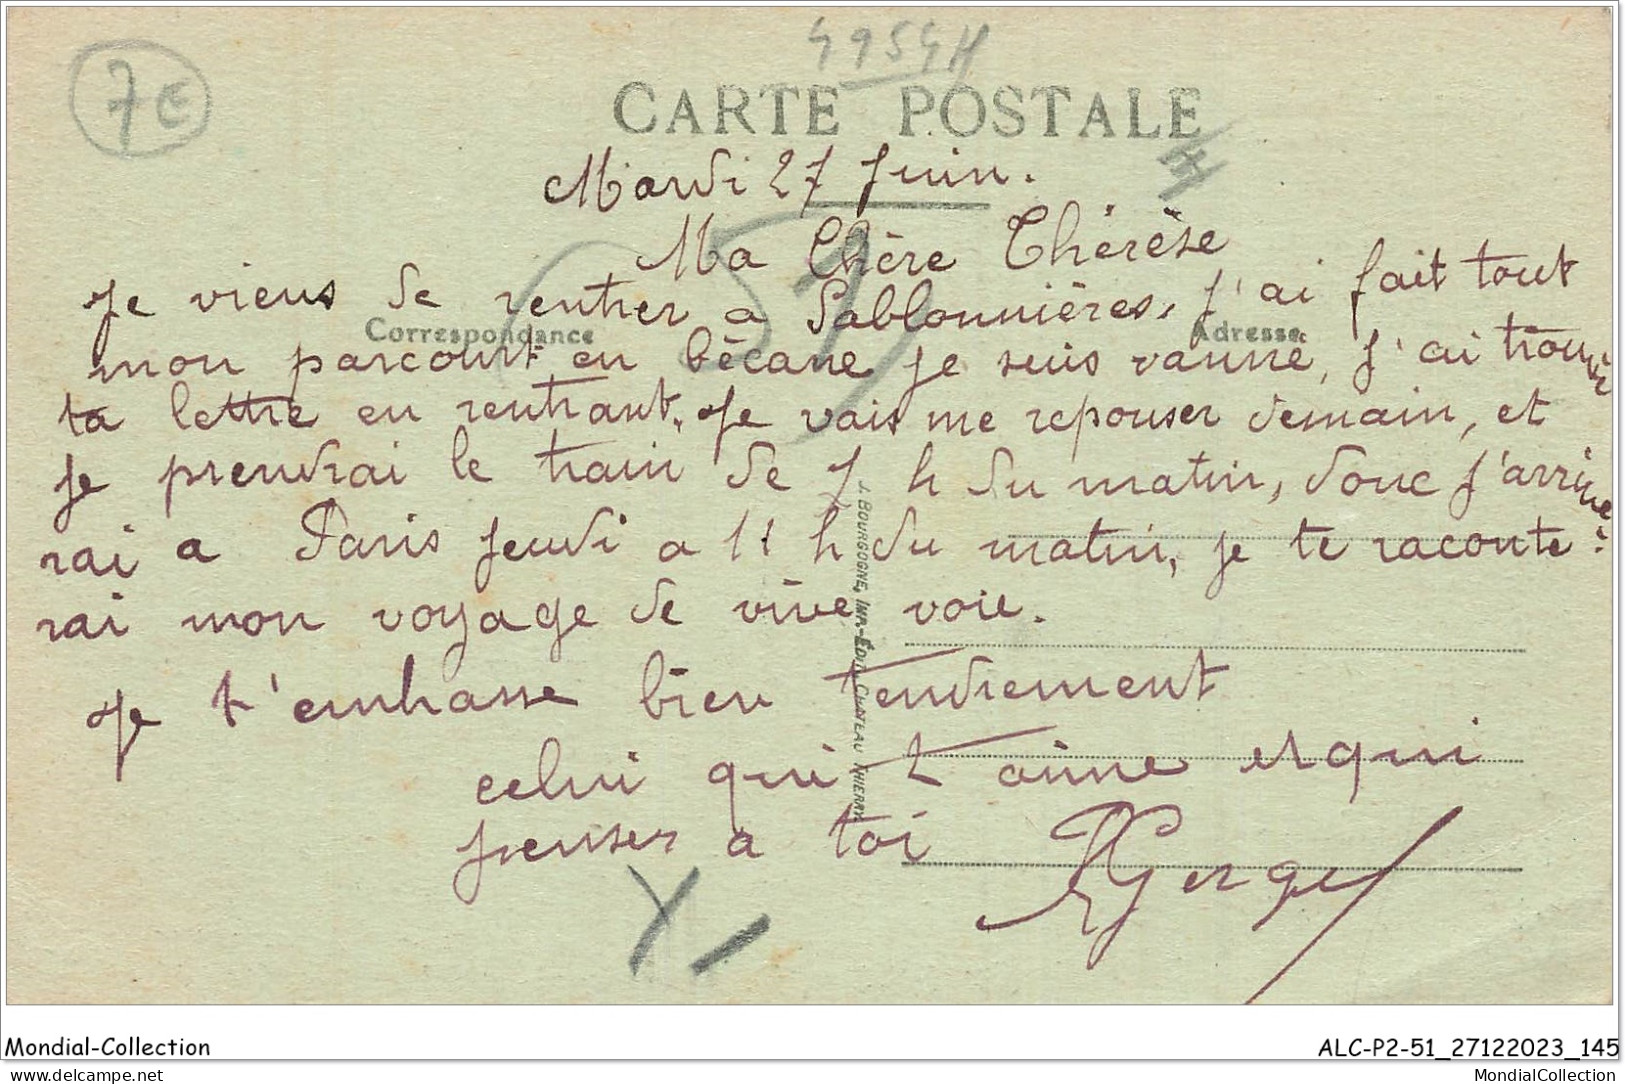 4954H
7€
CARTE POSTALE
Mardi 27 Juin.
Ma Chère Thérèse
51
Je viens de rentrer a Sablonnières, j'ai fait tout
Correspondance
Adresse
mon parcourt en bécane je suis vanné, j'ai trouvé
ta lettre en rentrant. Je vais me repouser demain, et
je prendrai le train de 7 h du matin, donc j'arrive
rai a Paris jeudi a 11 h du matin, je te raconte:
rai mon voyage de vive voie.
J. BOURGOGNE, IMP.-ÉDIT. CHATEAU THIERRY
Je t'embasse bien tendrement
celui qui t aime et qui
penser a toi
Mondial-Collection
ALC-P2-51_27122023_145
delcampe.net
MondialCollection